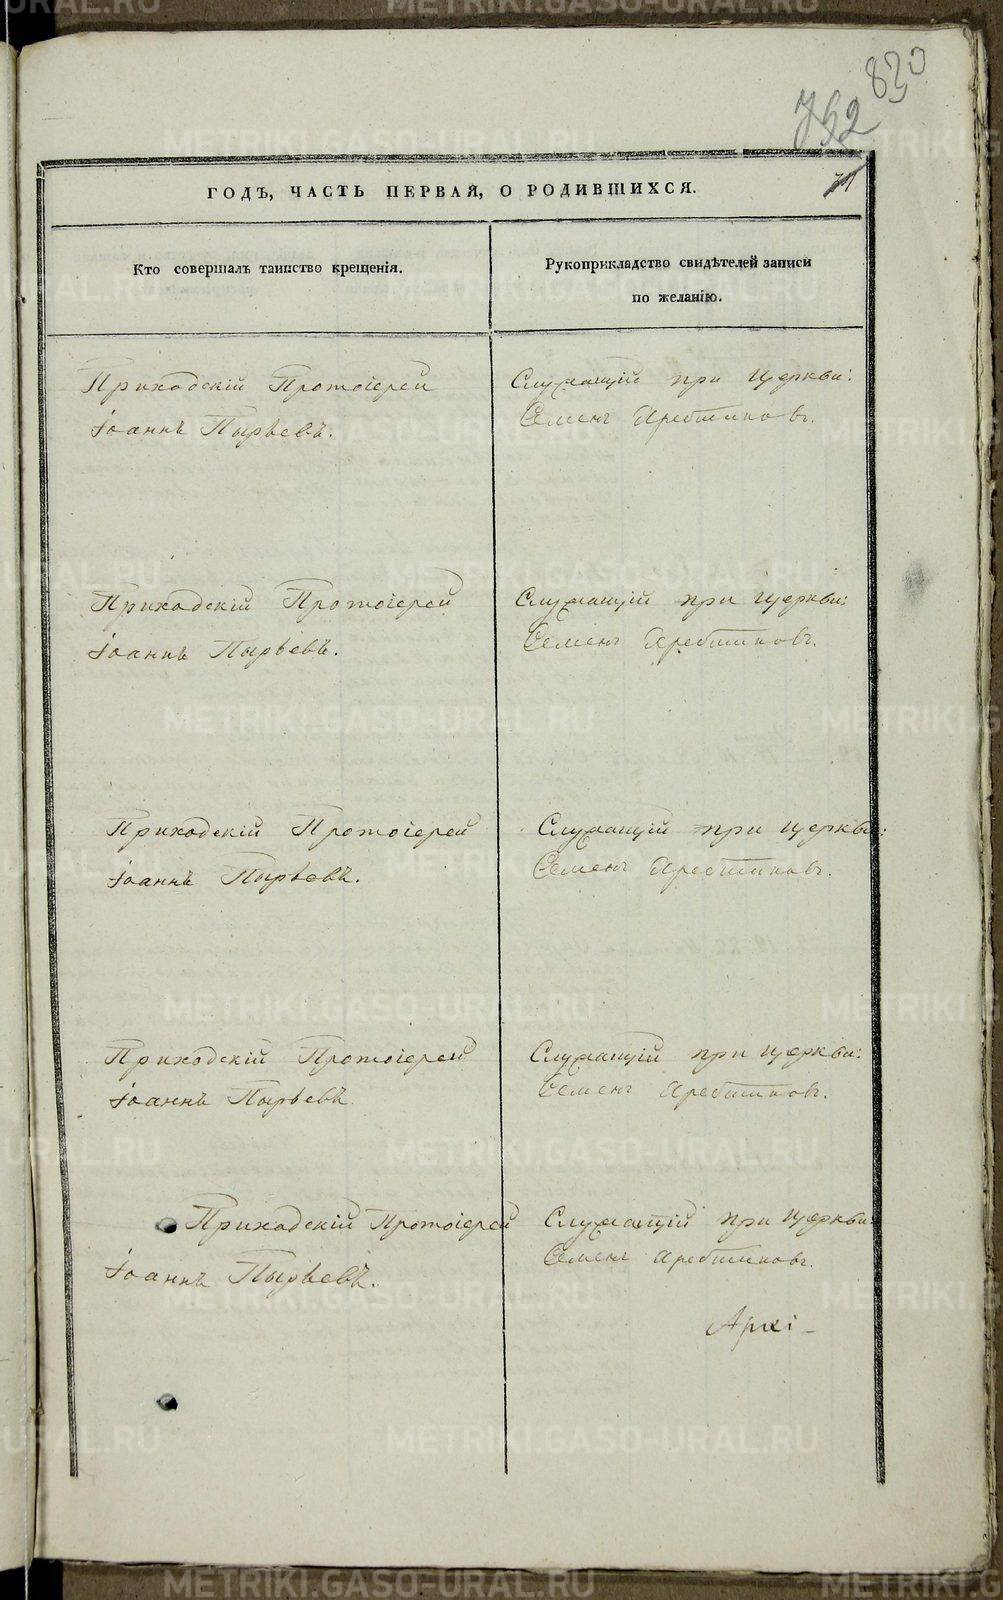 830
752
71
ГОДЪ, ЧАСТЬ ПЕРВАЯ, О РОДИВШИХСЯ.
Кто совершалъ таинство крещенія.
Рукоприкладство свидѣтелей записи
по желанію.
Приходскій Протоіерей
Іоаннъ Пырьевъ.
Служащій при церкви:
Семенъ
Приходскій Протоіерей
Іоаннъ Пырьевъ.
Служащій при церкви:
Семенъ
Приходскій Протоіерей
Іоаннъ Пырьевъ.
Служащій при церкви:
Семенъ
Приходскій Протоіерей
Іоаннъ Пырьевъ
Служащій при церкви:
Семенъ
Приходскій Протоіерей
Іоаннъ Пырьевъ.
Служащій при церкви:
Семенъ
Архі-
METRIKI.GASO-URAL.RU